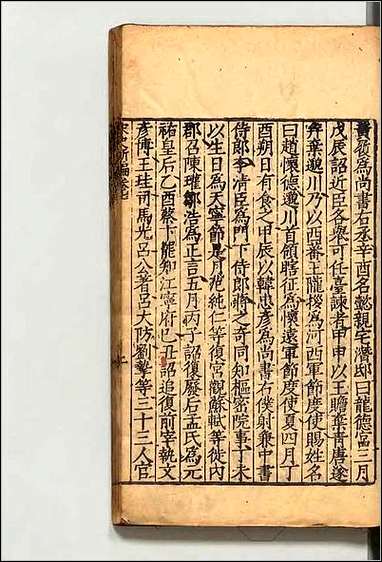 黃履為尚書右丞辛酉名懿親宅潛邸曰龍德宮三月
戊辰詔近臣各舉可任臺諫者甲申以王贍棄青唐遂
弃邈川乃以西蕃王隴拶為河西軍節度使賜姓名
曰趙懷德邈川首領瞎征為懷遠軍節度使夏四月丁
酉朔日有食之甲辰以韓忠彥為尚書右僕射兼中書
侍郎李清臣為門下侍郎蔣之奇同知樞密院事丁未
以生日為天寧節是月范純仁等復官觀蘇軾等徙內
郡召陳瓘鄒浩為正言五月丙子詔復廢后孟氏為元
祐皇后乙酉蔡卞罷知江寧府己丑詔追復前宰執文
彥博王珪司馬光呂公著呂大防劉摯等三十三人官
宋史新編卷七